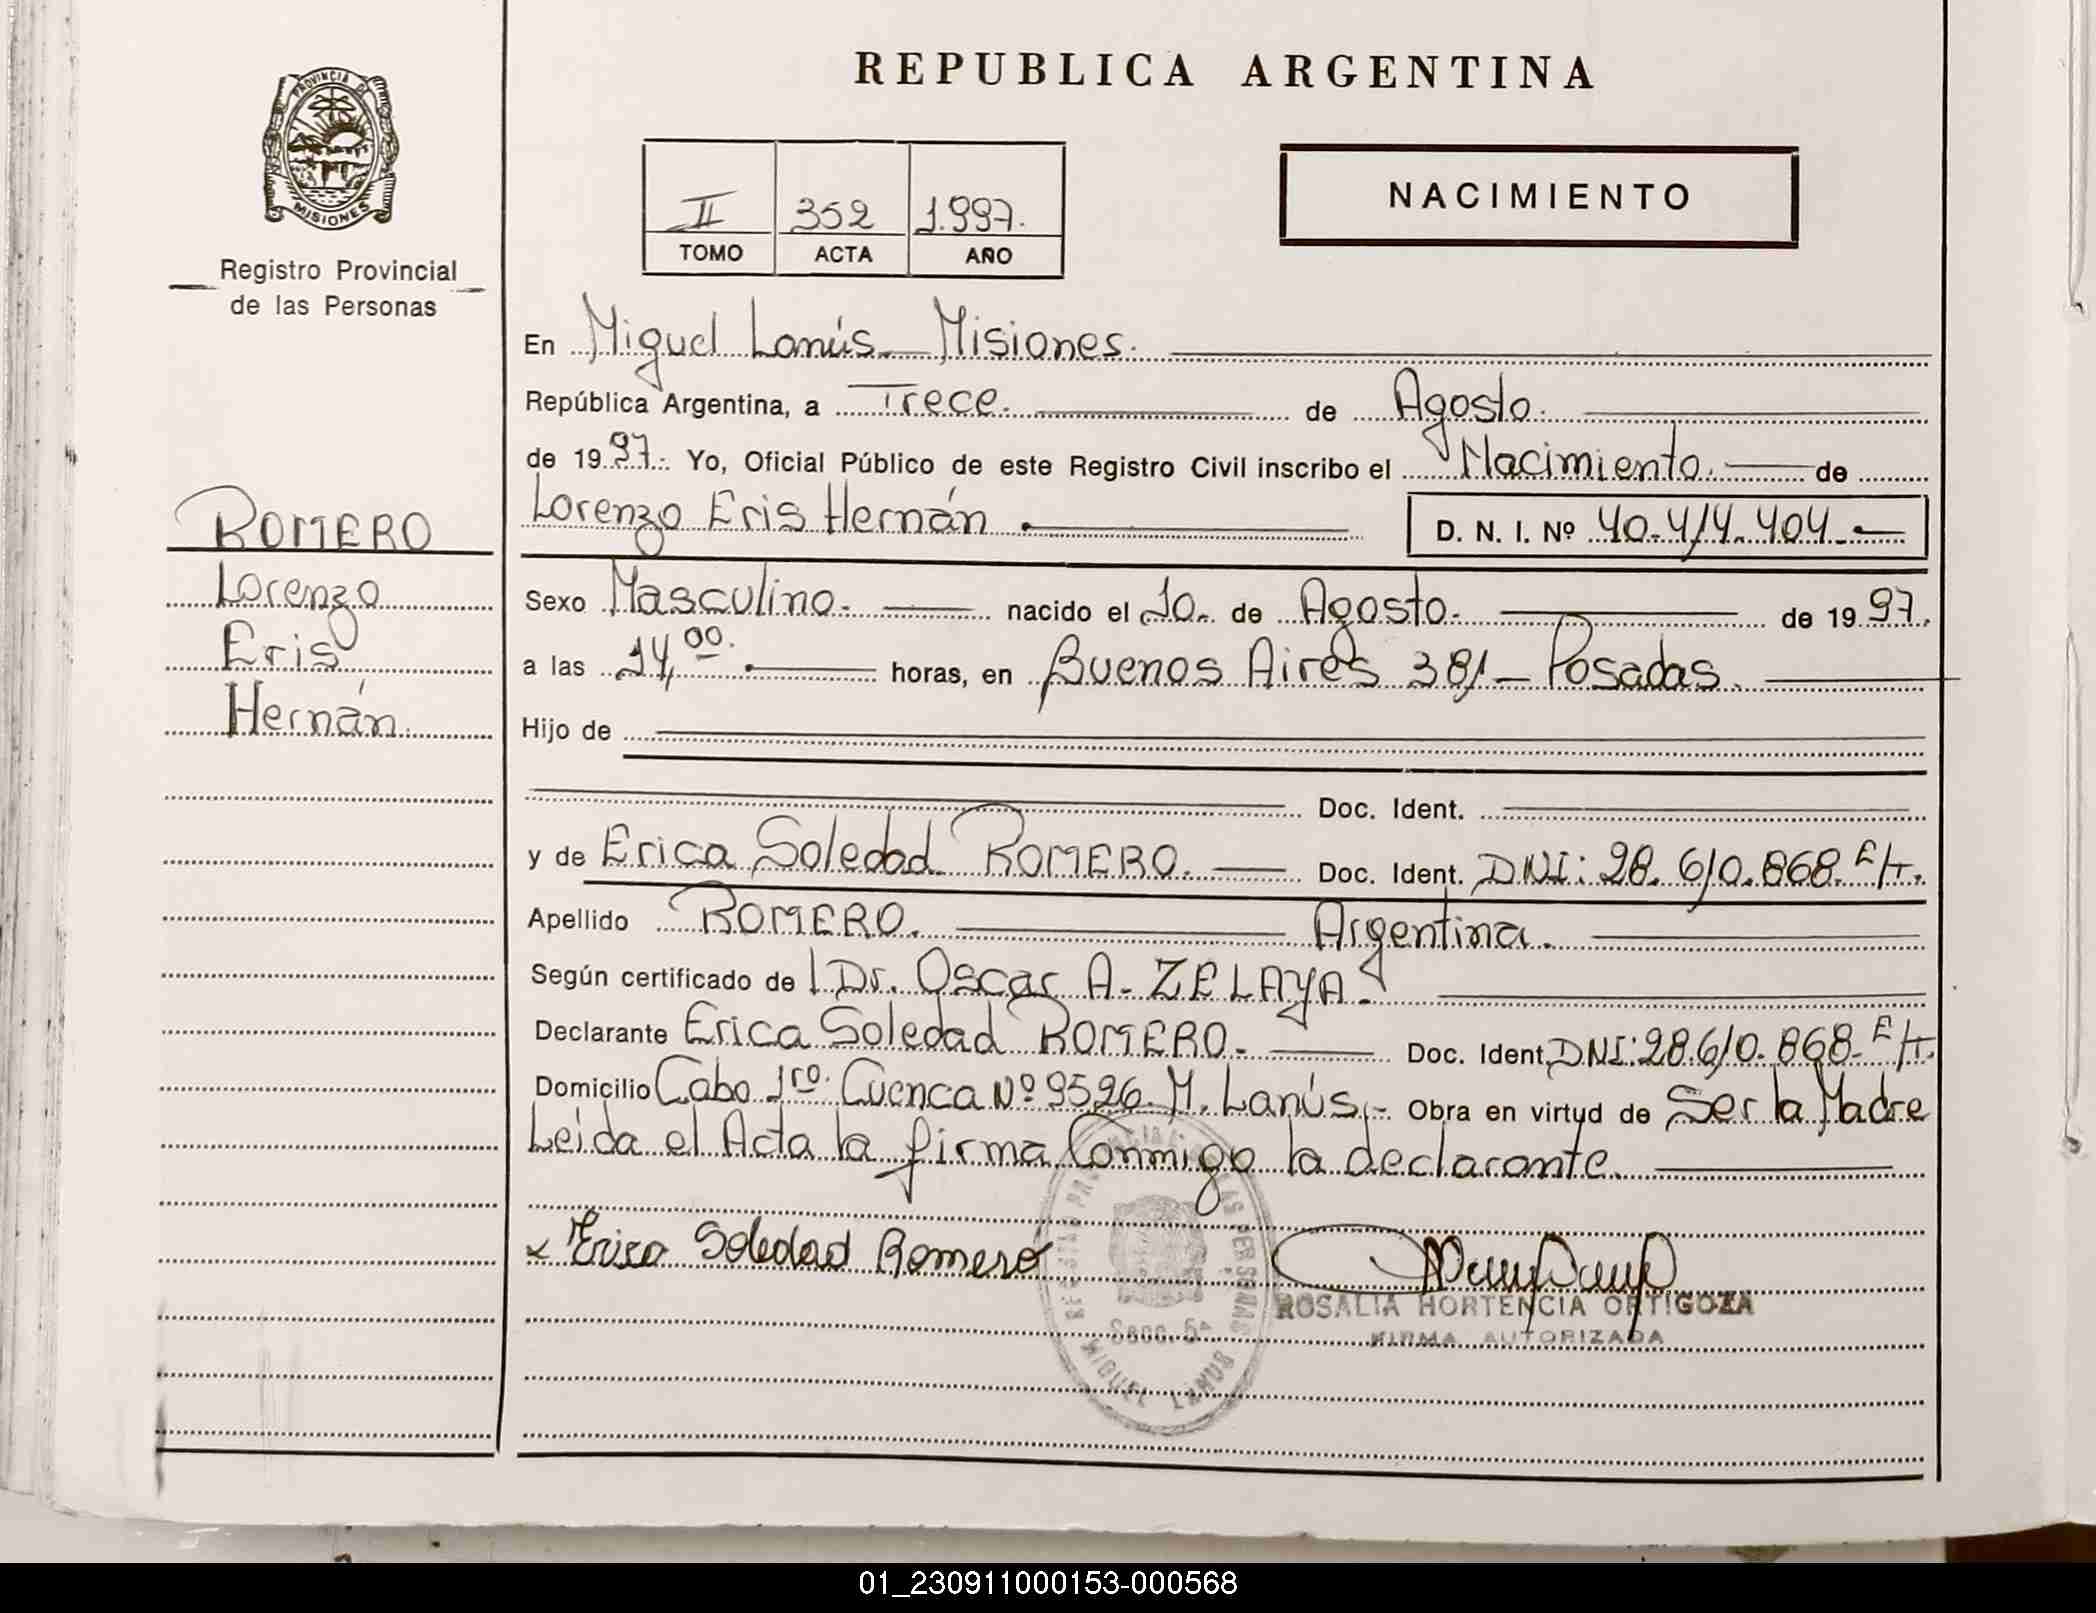 REPUBLICA ARGENTINA
PROVINCIA DE
MISIONES
Registro Provincial
de las Personas
II 352 1.997.
TOMO ACTA AÑO
NACIMIENTO
ROMERO
Lorenzo
Eris
Hernán.
En Miguel Lanús - Misiones.
República Argentina, a Trece. de Agosto.
de 1997. Yo, Oficial Público de este Registro Civil inscribo el Nacimiento. de
Lorenzo Eris Hernán D. N. I. Nº 40.414.404.-
Sexo Masculino. nacido el 10. de Agosto. de 1997.
a las 14,00. horas, en Buenos Aires 381 - Posadas.
Hijo de
Doc. Ident.
y de Erica Soledad ROMERO. Doc. Ident. DNI: 28.610.868. E/t.
Apellido ROMERO. Argentina.
Según certificado de Dr. Oscar A. ZELAYA.
Declarante Erica Soledad ROMERO. Doc. Ident. DNI: 28.610.868. E/t.
Domicilio Cabo 1ro. Cuenca Nº 9526. M. Lanús.- Obra en virtud de Ser la Madre
Leida el Acta la firma Conmigo la declarante.
x Erica Soledad Romero
REGISTRO PROVINCIAL DE LAS PERSONAS
Secc. 5ª
MIGUEL LANUS
ROSALIA HORTENCIA ORTIGOZA
FIRMA AUTORIZADA
01_230911000153-000568